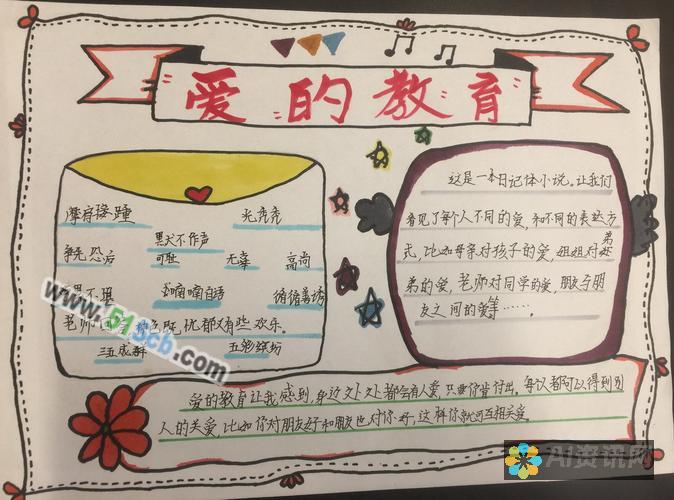 爱的教育
摩肩接踵 光秃秃
默不作声
争先恐后 可耻 无辜 高尚
不理 喃喃自语 循循善诱
老师 色既忧郁又有些欢乐。
三五成群 五彩缤纷
这是一本日记体小说。让我们
看见了每个人不同的爱,和不同的表达方
式,比如母亲对孩子的爱,姐姐对弟
弟的爱,老师对同学的爱,朋友与朋
友之间的爱等……
爱的教育让我感到,身边处处都会有人爱,只要你肯付出。每次都可以得到别
人的关爱,比如你对朋友好和朋友也对你好,这样你就可互相关爱.
www.51scb.com
AI资讯网